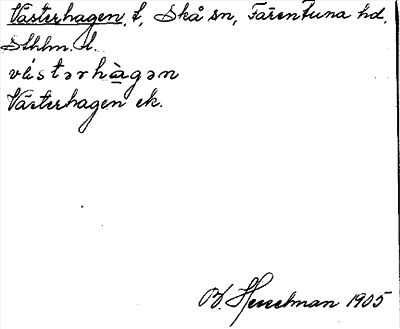 Västerhagen, t, Skå sn, Färentuna hd,
Sthlm. l.
véstərhàgən
Västerhagen ek.
B. Hesselman 1905